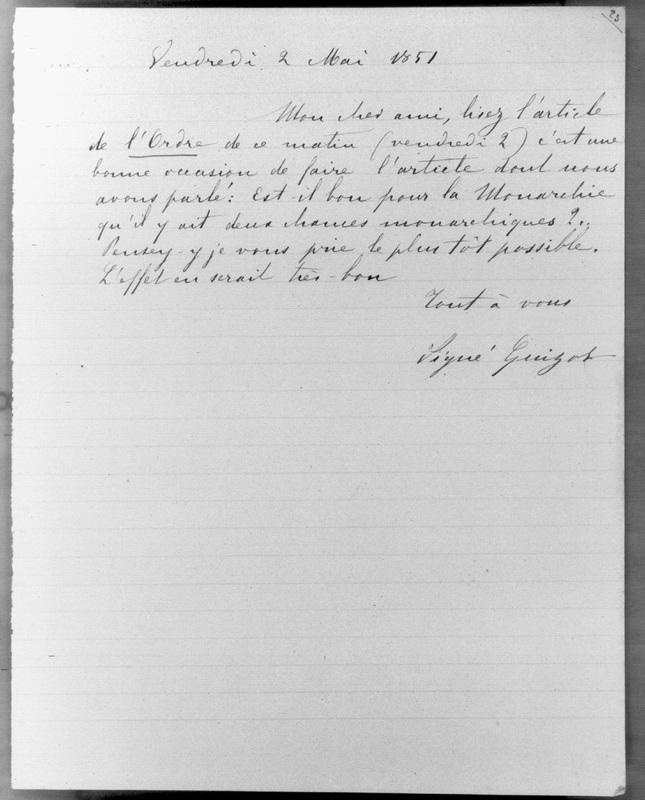 23
Vendredi 2 Mai 1851
Mon cher ami, lisez l'article
de l'Ordre de ce matin (vendredi 2) c'est une
bonne occasion de faire l'article dont nous
avons parlé: Est-il bon pour la Monarchie
qu'il y ait deux chances monarchiques ?..
Pensez-y je vous prie le plus tôt possible.
L'effet en serait très-bon
Tout à vous
Signé Guizot